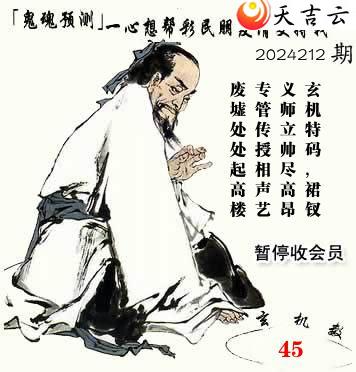 天吉云
「鬼魂预测」一心想帮彩民朋
2024212 期
玄机特码,裙钗
义师立帅尽高昂
专管传授相声艺
废墟处处起高楼
暂停收会员
玄机数
45